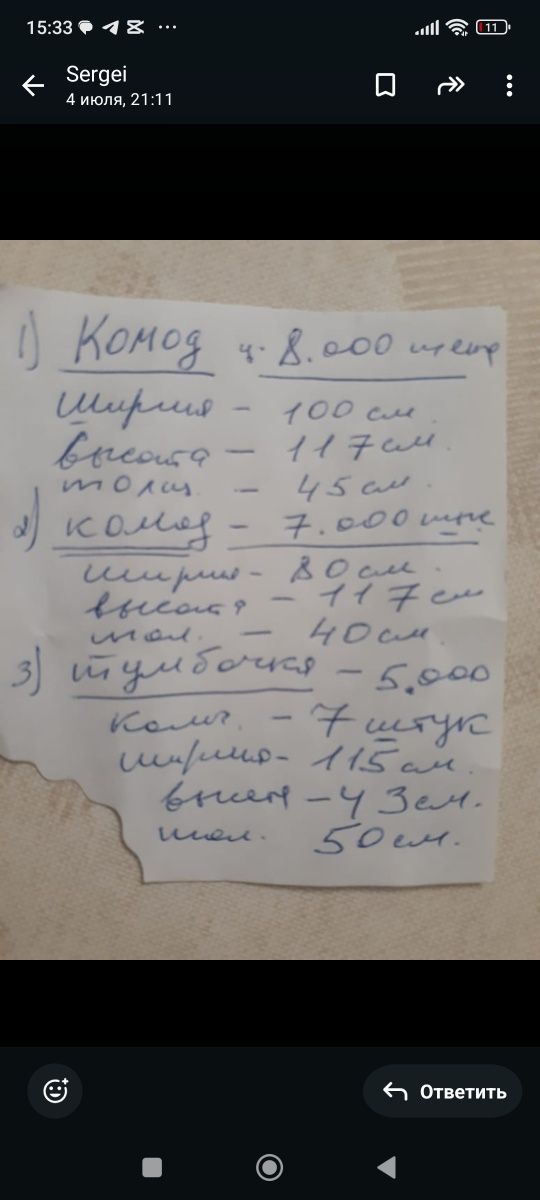 15:33 ... 11
Sergei
4 июля, 21:11
1) Комод ц. 8.000
Ширина - 100 см.
высота - 117 см.
толщ. - 45 см.
2) комод - 7.000
ширина - 80 см.
высота - 117 см
тол. - 40 см.
3) тумбочка - 5.000
- 7 штук
ширина - 115 см.
высота - 43 см.
тол. 50 см.
Ответить